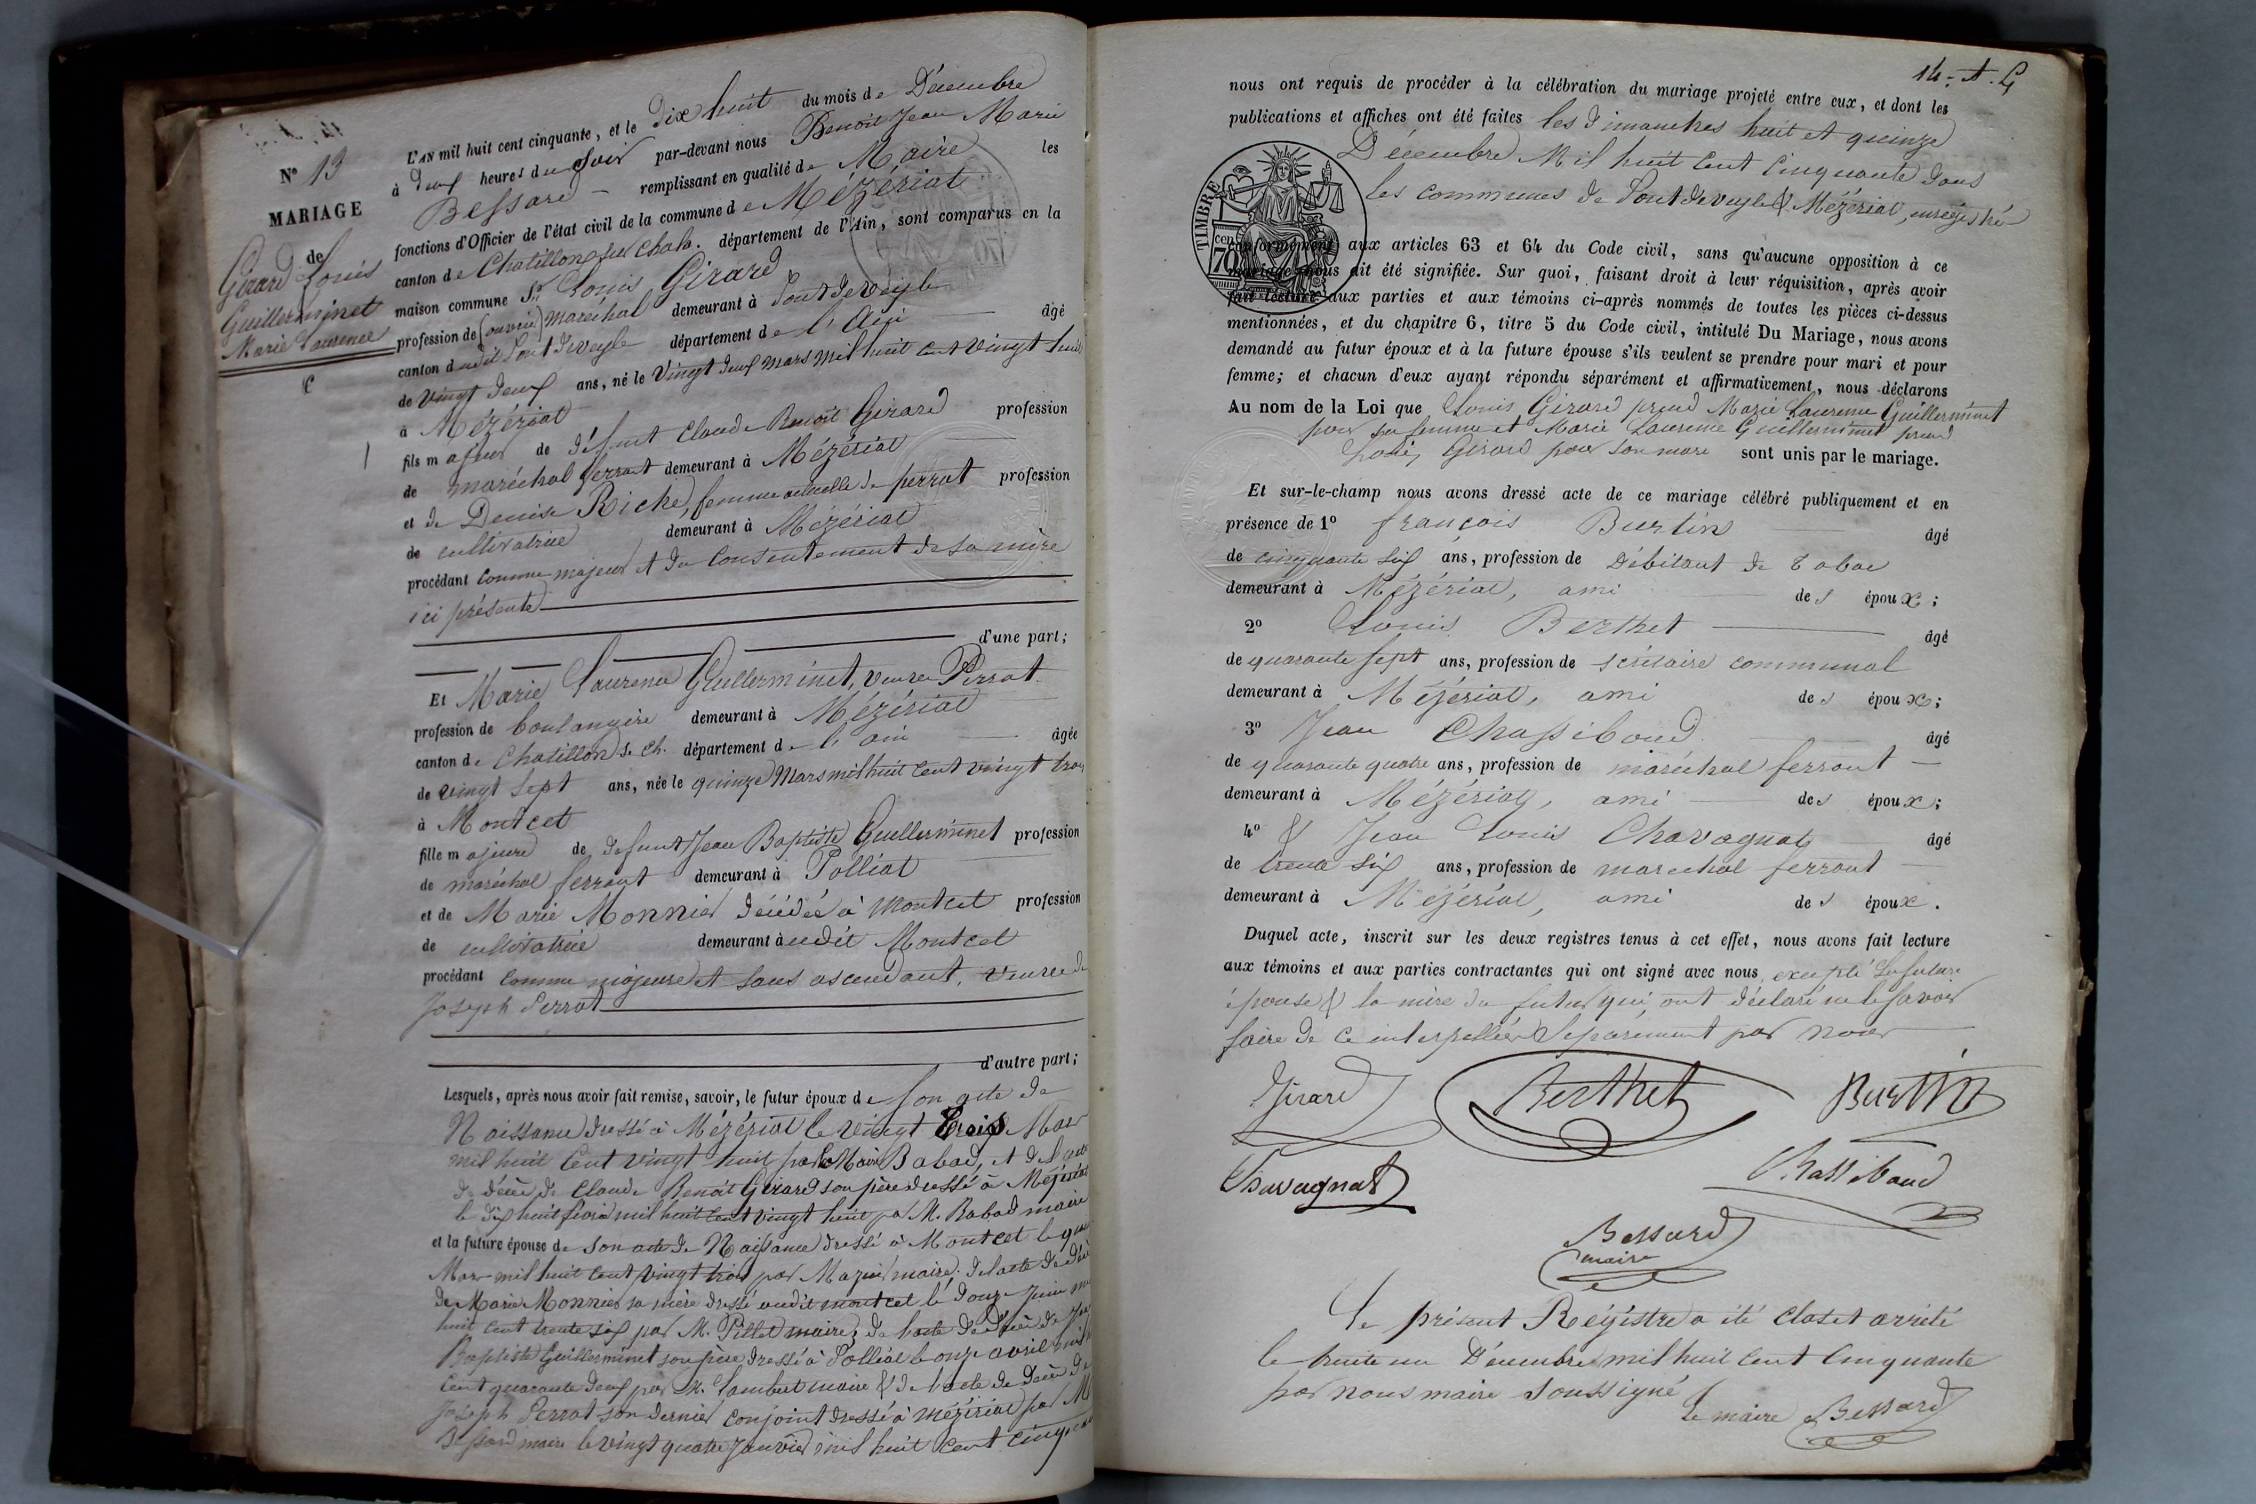 N° 13
MARIAGE
de
Girard Louis
Guillerminet
Marie Laurence
L'AN mil huit cent cinquante, et le dix huit du mois de Décembre
à deux heures du soir par-devant nous Benoit Jean Marie
Bessard remplissant en qualité de Maire les
fonctions d'Officier de l'état civil de la commune de Mézériat
canton de Chatillon sur Chalar. département de l'Ain, sont comparus en la
maison commune Sr Louis Girard
profession de (ouvrier) maréchal demeurant à Pont de veyle
canton dudit Pont de veyle département de l'Ain âgé
de vingt deux ans, né le vingt deux mars mil huit cent vingt huit
à Mézériat
fils majeur de défunt Claude Benoit Girard profession
de maréchal ferrant demeurant à Mézériat
et de Denise Riche, femme actuelle de perrat profession
de cultivatrice demeurant à Mézériat
procédant comme majeur et du consentement de sa mère
ici présente
d'une part;
Et Marie Laurence Guillerminet, veuve Perrat
profession de boulangère demeurant à Mézériat
canton de Chatillon s. Ch. département de l'ain âgée
de vingt sept ans, née le quinze Mars mil huit cent vingt trois
à Montcet
fille majeure de defunt Jean Baptiste Guillerminet profession
de maréchal ferrant demeurant à Polliat
et de Marie Monnier décédée à Montcet profession
de cultivatrice demeurant audit Montcet
procédant comme majeure et sans ascendant, veuve de
Joseph Perrat
d'autre part;
Lesquels, après nous avoir fait remise, savoir, le futur époux de son acte de
Naissance dressé à Mézériat le vingt trois Mars
mil huit cent vingt huit par le Maire Babad, et de l'acte
de décès de Claude Benoit Girard son père dressé à Mézériat
le dix huit mil huit cent vingt huit par M. Babad maire
et la future épouse de son acte de Naissance dressé à Montcet le
Mars mil huit cent vingt trois par maire. de l'acte de décès
de Marie Monnier sa mère dressé audit montcet le douze juin mil
huit cent trente six par M. Pillet maire, de l'acte de décès de Jean
Baptiste Guillerminet son père dressé à Polliat le onze avril mil huit
cent quarante deux par M. Lambert maire & de l'acte de décès de
Joseph Perrat son dernier conjoint dressé à Mézériat par M.
Bessard maire le vingt quatre janvier mil huit cent cinquante
14. A. G
nous ont requis de procéder à la célébration du mariage projeté entre eux, et dont les
publications et affiches ont été faites les dimanches huit et quinze
Décembre Mil huit Cent Cinquante dans
les communes de Pont de veyle & Mézériat, enregistré
TIMBRE
cen
70
conformément aux articles 63 et 64 du Code civil, sans qu'aucune opposition à ce
mariage nous ait été signifiée. Sur quoi, faisant droit à leur réquisition, après avoir
fait lecture aux parties et aux témoins ci-après nommés de toutes les pièces ci-dessus
mentionnées, et du chapitre 6, titre 5 du Code civil, intitulé Du Mariage, nous avons
demandé au futur époux et à la future épouse s'ils veulent se prendre pour mari et pour
femme; et chacun d'eux ayant répondu séparément et affirmativement, nous déclarons
Au nom de la Loi que Louis Girard prend Marie Laurence Guillerminet
pour sa femme et Marie Laurence Guillerminet prend
Louis Girard pour son mari sont unis par le mariage.
Et sur-le-champ nous avons dressé acte de ce mariage célébré publiquement et en
présence de 1° françois Burtin âgé
de cinquante six ans, profession de Débitant de Tabac
demeurant à Mézériat, ami des époux;
2° Louis Berthet âgé
de quarante sept ans, profession de secrétaire communal
demeurant à Mézériat, ami des époux;
3° Jean Chassiboud âgé
de quarante quatre ans, profession de maréchal ferrant
demeurant à Mézériat, ami des époux;
4° & Jean Louis Chavagnat âgé
de trente six ans, profession de marechal ferrant
demeurant à Mézériat, ami des époux.
Duquel acte, inscrit sur les deux registres tenus à cet effet, nous avons fait lecture
aux témoins et aux parties contractantes qui ont signé avec nous, excepté la future
épouse & la mère du futur qui ont déclaré ne le savoir
faire de ce interpellées séparement par nous
Girard Berthet Burtin
Chavagnat Chassiboud
Bessard
maire
Le présent Régistre a été clos et arrêté
le trente un Décembre mil huit cent cinquante
par nous maire soussigné
Le maire Bessard